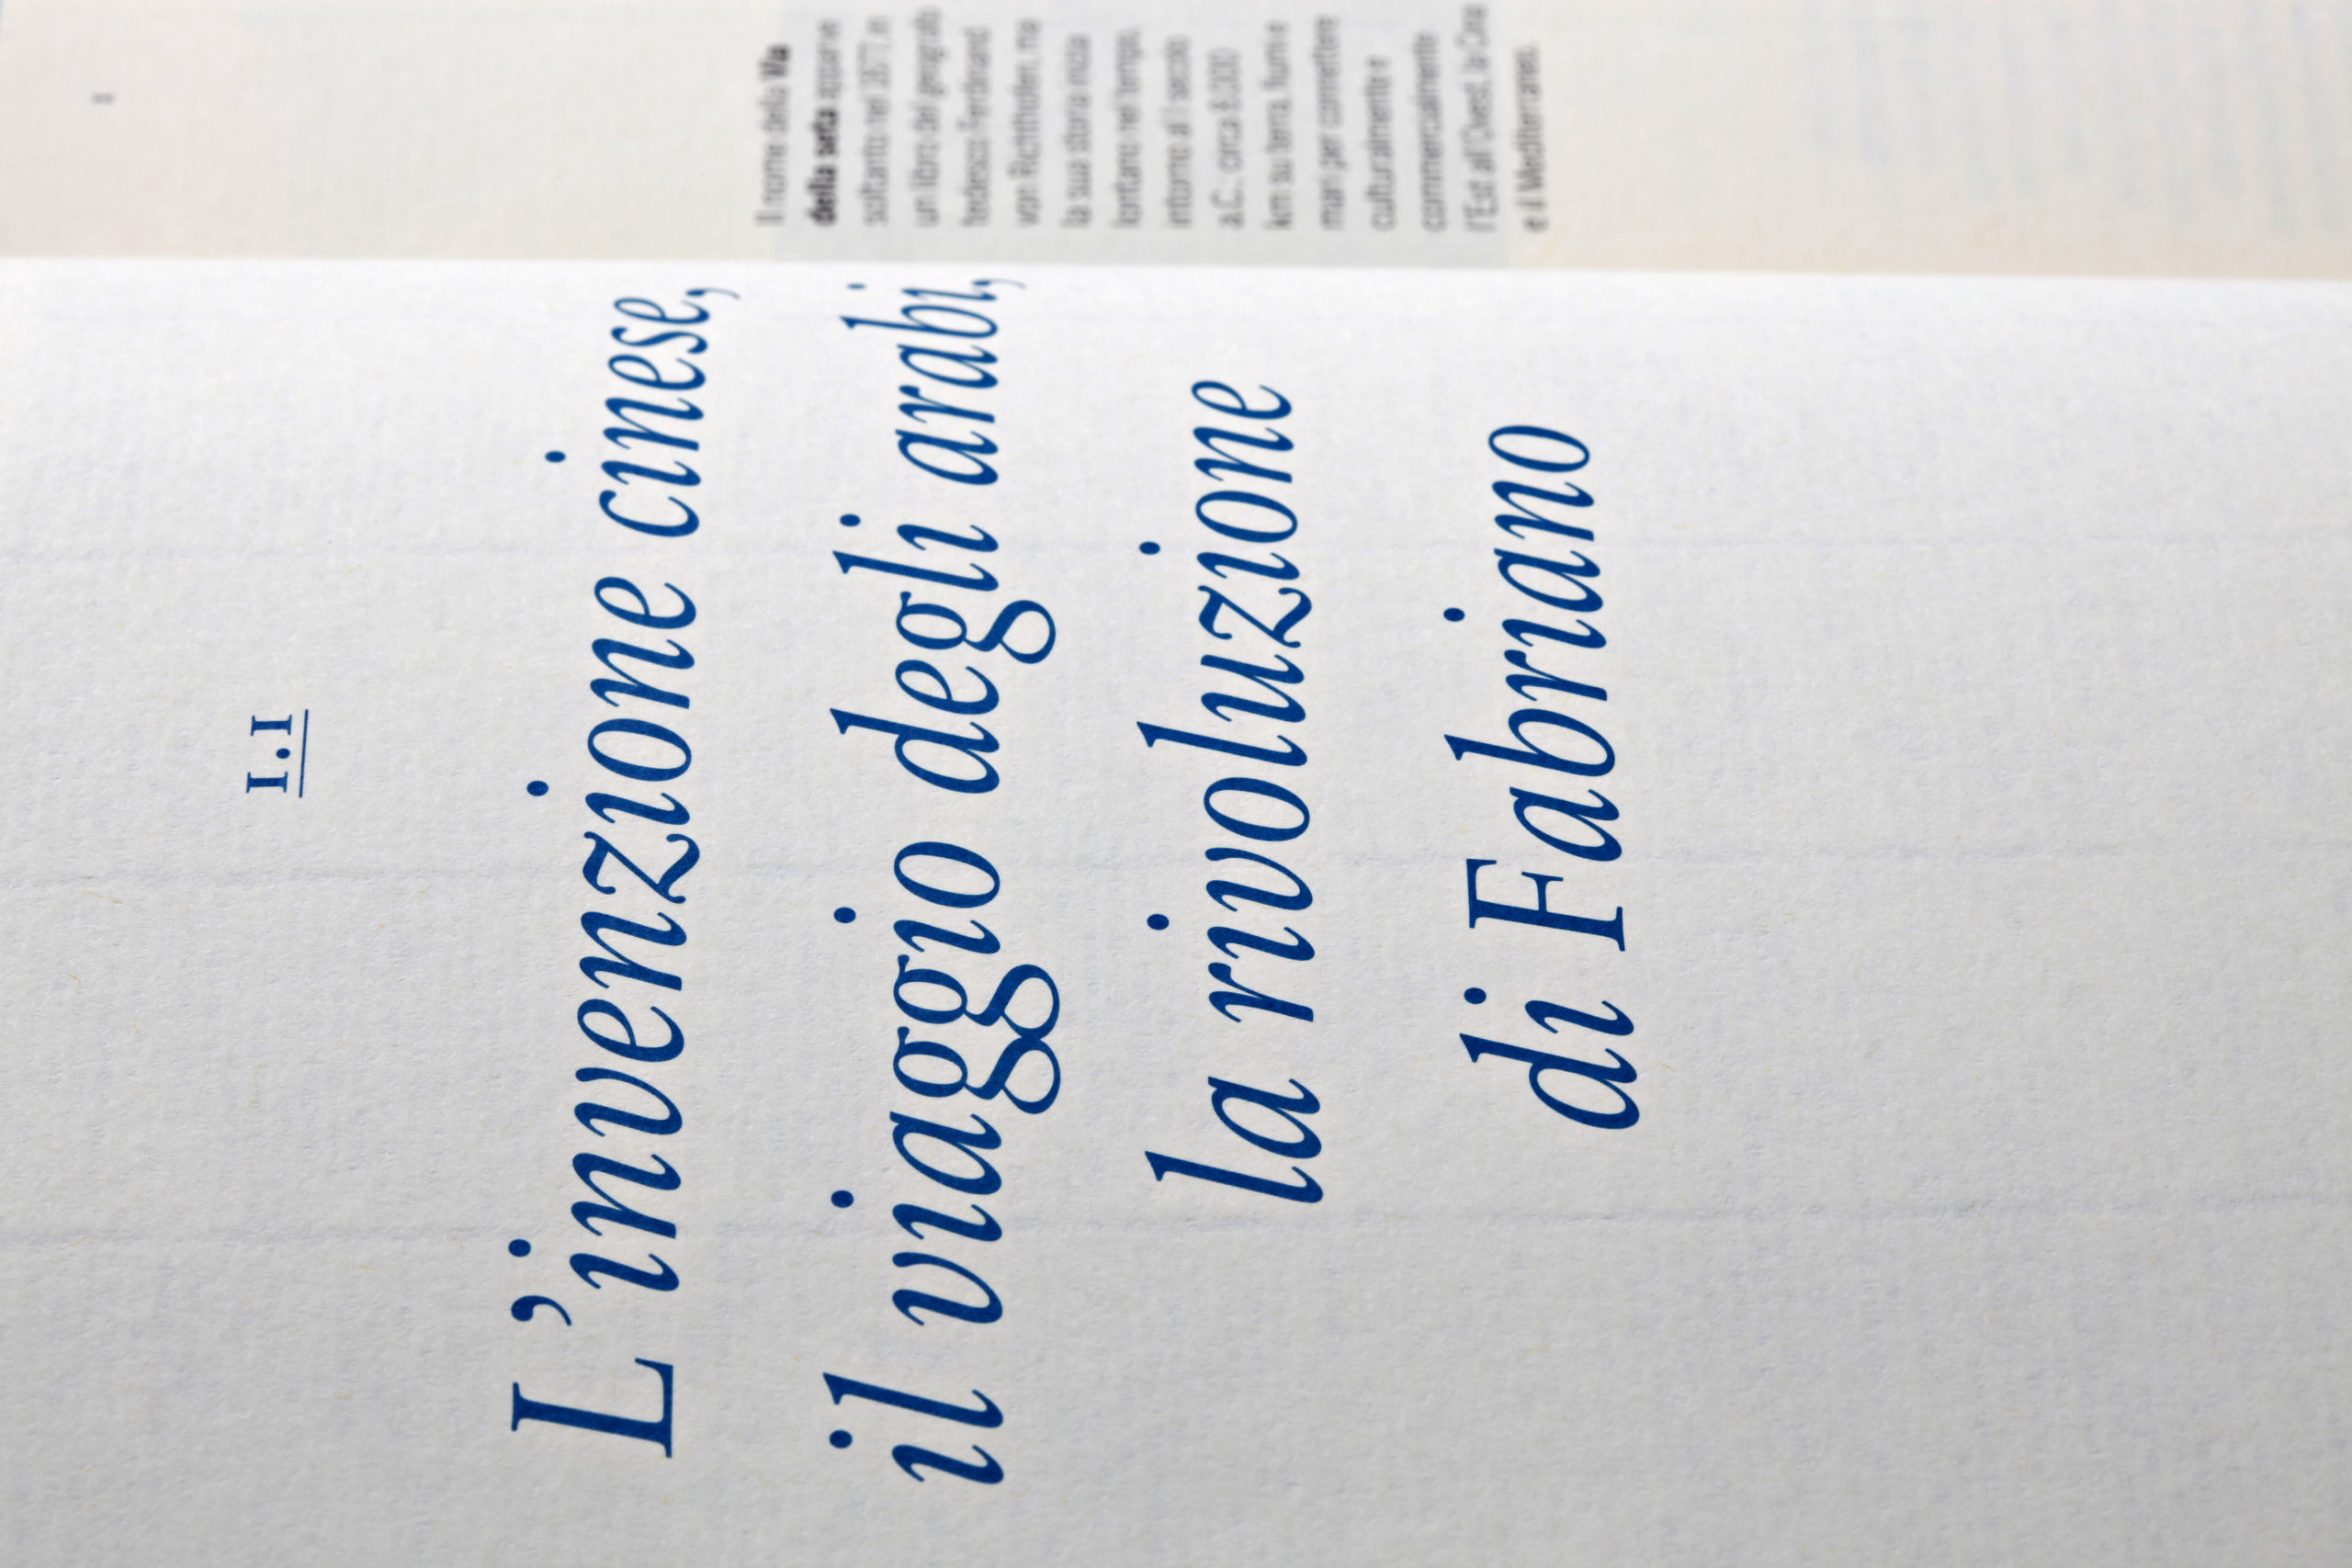 1.1
L'invenzione cinese,
il viaggio degli arabi,
la rivoluzione
di Fabriano
Il nome della Via
della seta apparve
soltanto nel 1877, in
un libro del geografo
tedesco Ferdinand
von Richthofen, ma
la sua storia inizia
lontano nel tempo,
intorno al I secolo
a.C.: circa 8.000
km su terra, fiumi e
mari per connettere
culturalmente e
commercialmente
l'Est all'Ovest, la Cina
e il Mediterraneo.